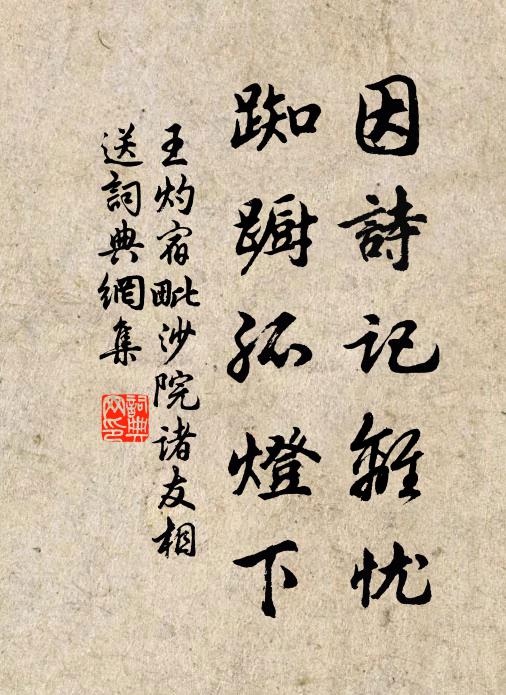 因詩記離忧
踟蹰孤燈下
王灼宿毗沙院诸友相
送詞典網集
詞典
网印